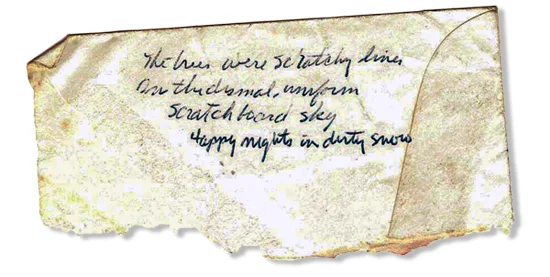 The trees were scratchy lines
On the dismal, uniform
Scratchboard sky
Happy nights in dirty snow